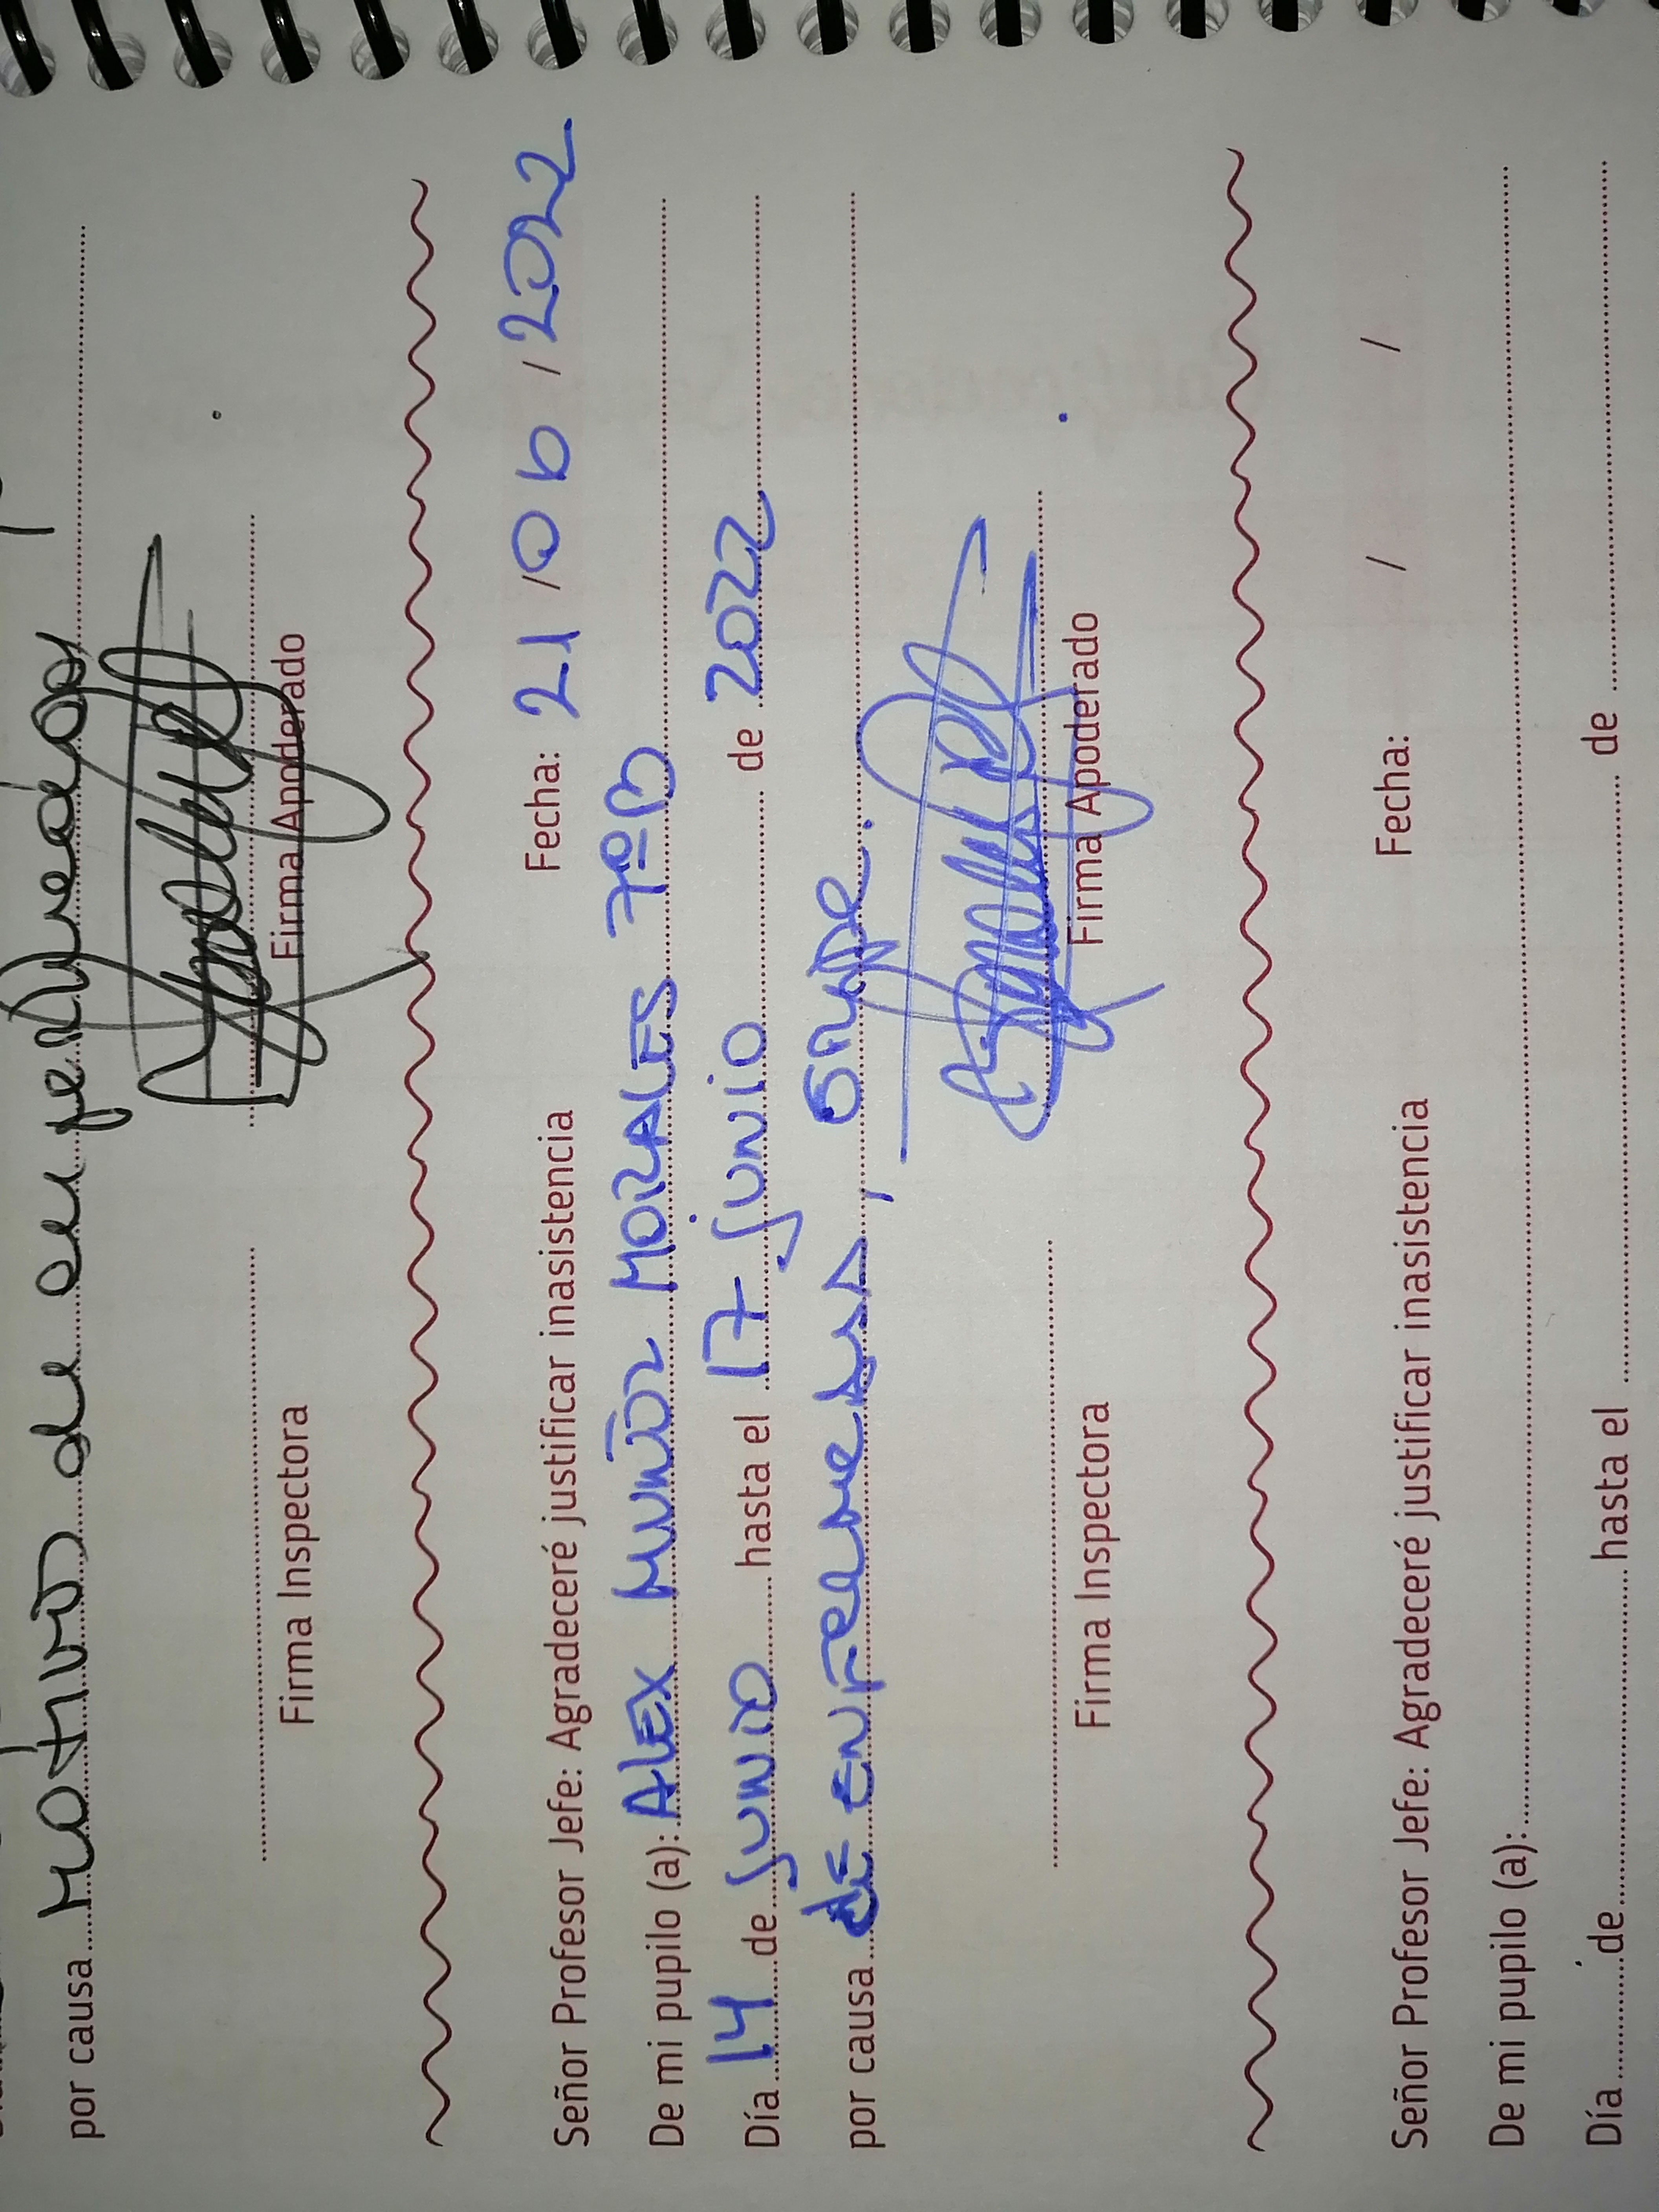 por causa motivo de su
Firma Inspectora Firma Apoderado
Fecha: 21 / 06 / 2022
Señor Profesor Jefe: Agradeceré justificar inasistencia
De mi pupilo (a): ALEX MUÑOZ MORALES 7º B
Día 14 de junio hasta el 17 junio de 2022
por causa de enfermedad, gripe.
Firma Inspectora Firma Apoderado
Fecha: / /
Señor Profesor Jefe: Agradeceré justificar inasistencia
De mi pupilo (a):
Día de hasta el de